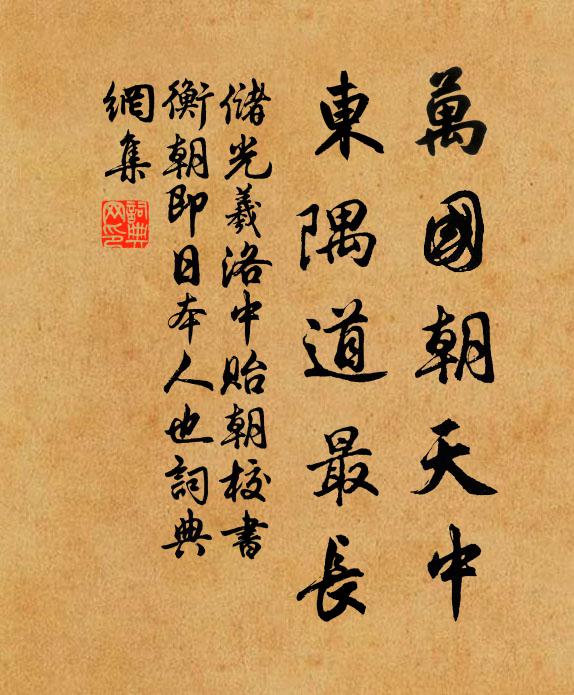 萬國朝天中
東隅道最長
儲光羲洛中貽朝校書
衡朝即日本人也詞典
網集
詞典網印